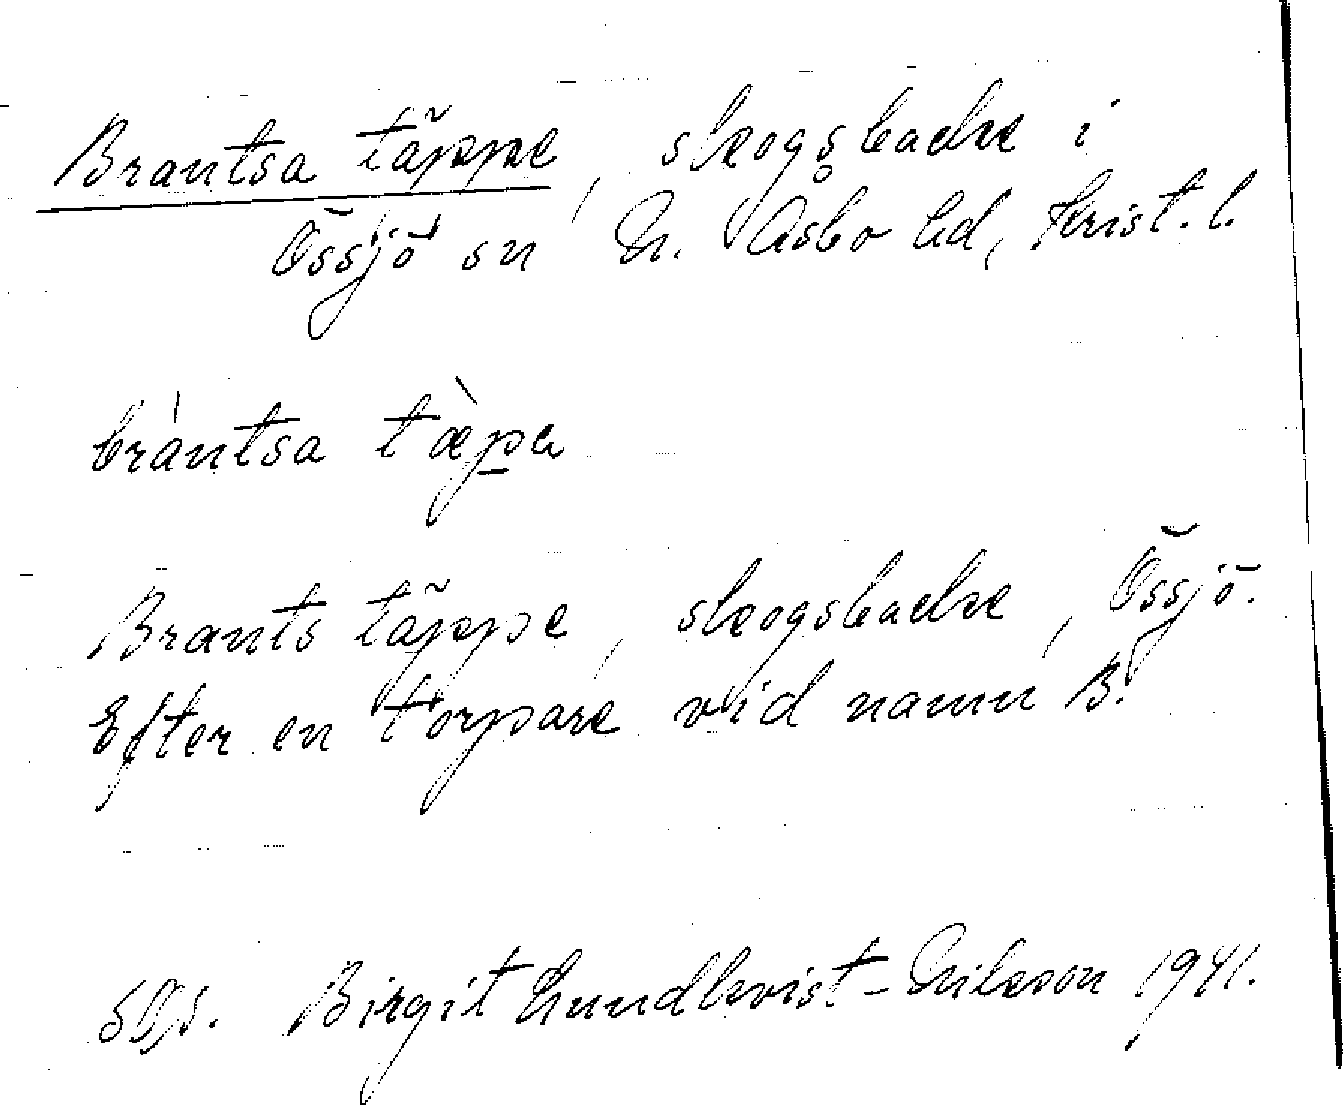 Brantsa täppe, skogsbacke i
Össjö sn N. Åsbo hd, Krist. l.
brántsa tæ̀pa
Brants täppe, skogsbacke, Össjö.
Efter en torpare vid namn B.
Birgit Lundkvist-Nilsson 1941.